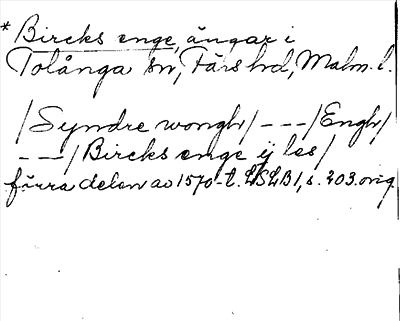 * Bircks enge, ängar i
Tolånga sn, Färs hd, Malm. l.
/Syndre wongh/ - - - /Engh/
- - - /Bircks enge ij les/
förra delen av 1570-t. LSLB1, s. 203. orig.